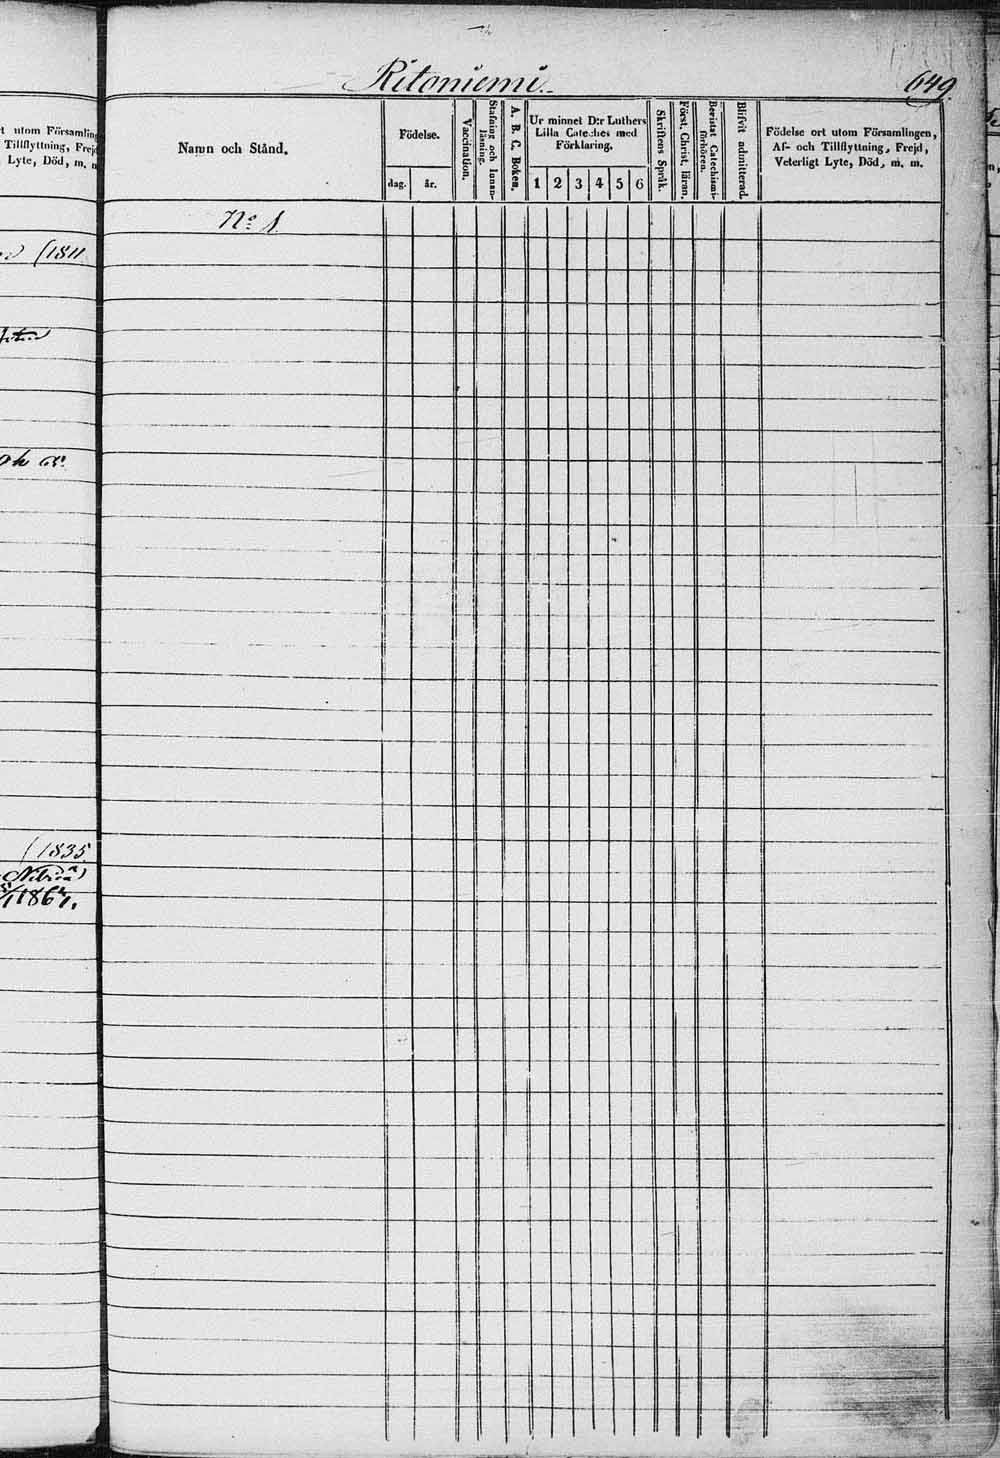 Ritoniemi
649.
t utom Församling
Tillflyttning, Frejd
Lyte, Död, m. m
(1811
(1835
1867.
Namn och Stånd.
Födelse.
dag.
år.
Vaccination.
Stafning och Innan-
läsning.
A. B. C. Boken.
Ur minnet D:r Luthers
Lilla Cateches med
Förklaring.
1 2 3 4 5 6
Skriftens Språk.
Först. Christ. läran.
Bevistat Catechismi-
förhören.
Blifvit admitterad.
Födelse ort utom Församlingen,
Af- och Tillflyttning, Frejd,
Veterligt Lyte, Död, m. m.
No 1